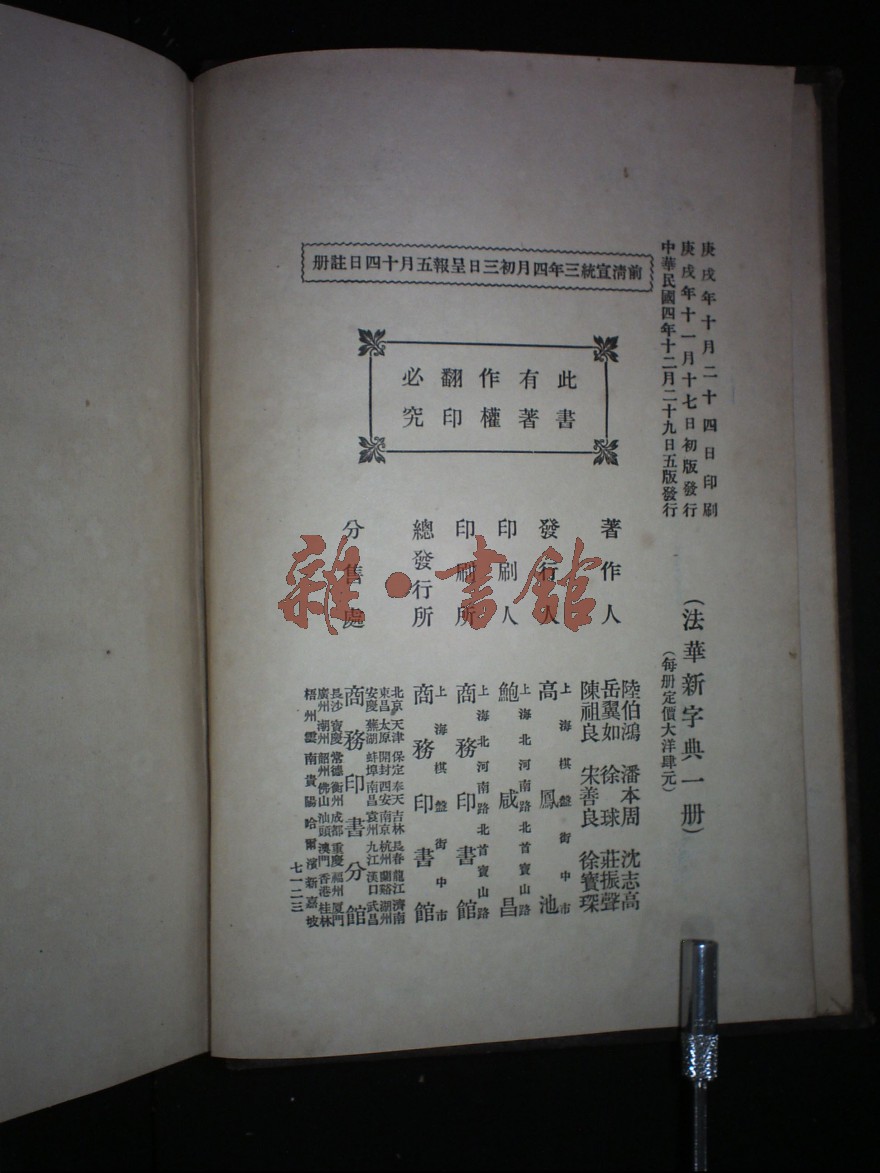 庚戌年十月二十四日印刷
庚戌年十一月十七日初版發行
中華民國四年十二月二十九日五版發行
(法華新字典一册)
(每册定價大洋肆元)
前清宣統三年四月初三日呈報五月十四日註册
此書
有著
作權
翻印
必究
著作人
陸伯鴻 潘本周 沈志高
岳翼如 徐球 莊振聲
陳祖良 宋善良 徐寶琛
發行人
上海棋盤街中市
高鳳池
印刷人
上海北河南路北首寶山路
鮑咸昌
印刷所
上海北河南路北首寶山路
商務印書館
總發行所
上海棋盤街中市
商務印書館
分售處
北京天津保定奉天吉林長春龍江濟南
東昌太原開封西安南京杭州蘭谿湖州
安慶蕪湖蚌埠南昌袁州九江漢口武昌
商務印書分館
長沙寶慶常德衡州成都重慶福州厦門
廣州潮州韶州佛山汕頭澳門香港桂林
梧州雲南貴陽哈爾濱新嘉坡
七一二三
雜·書館